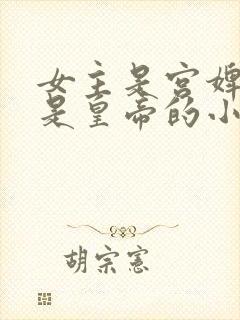 女主是宫婢
是皇帝的小
胡宗宪